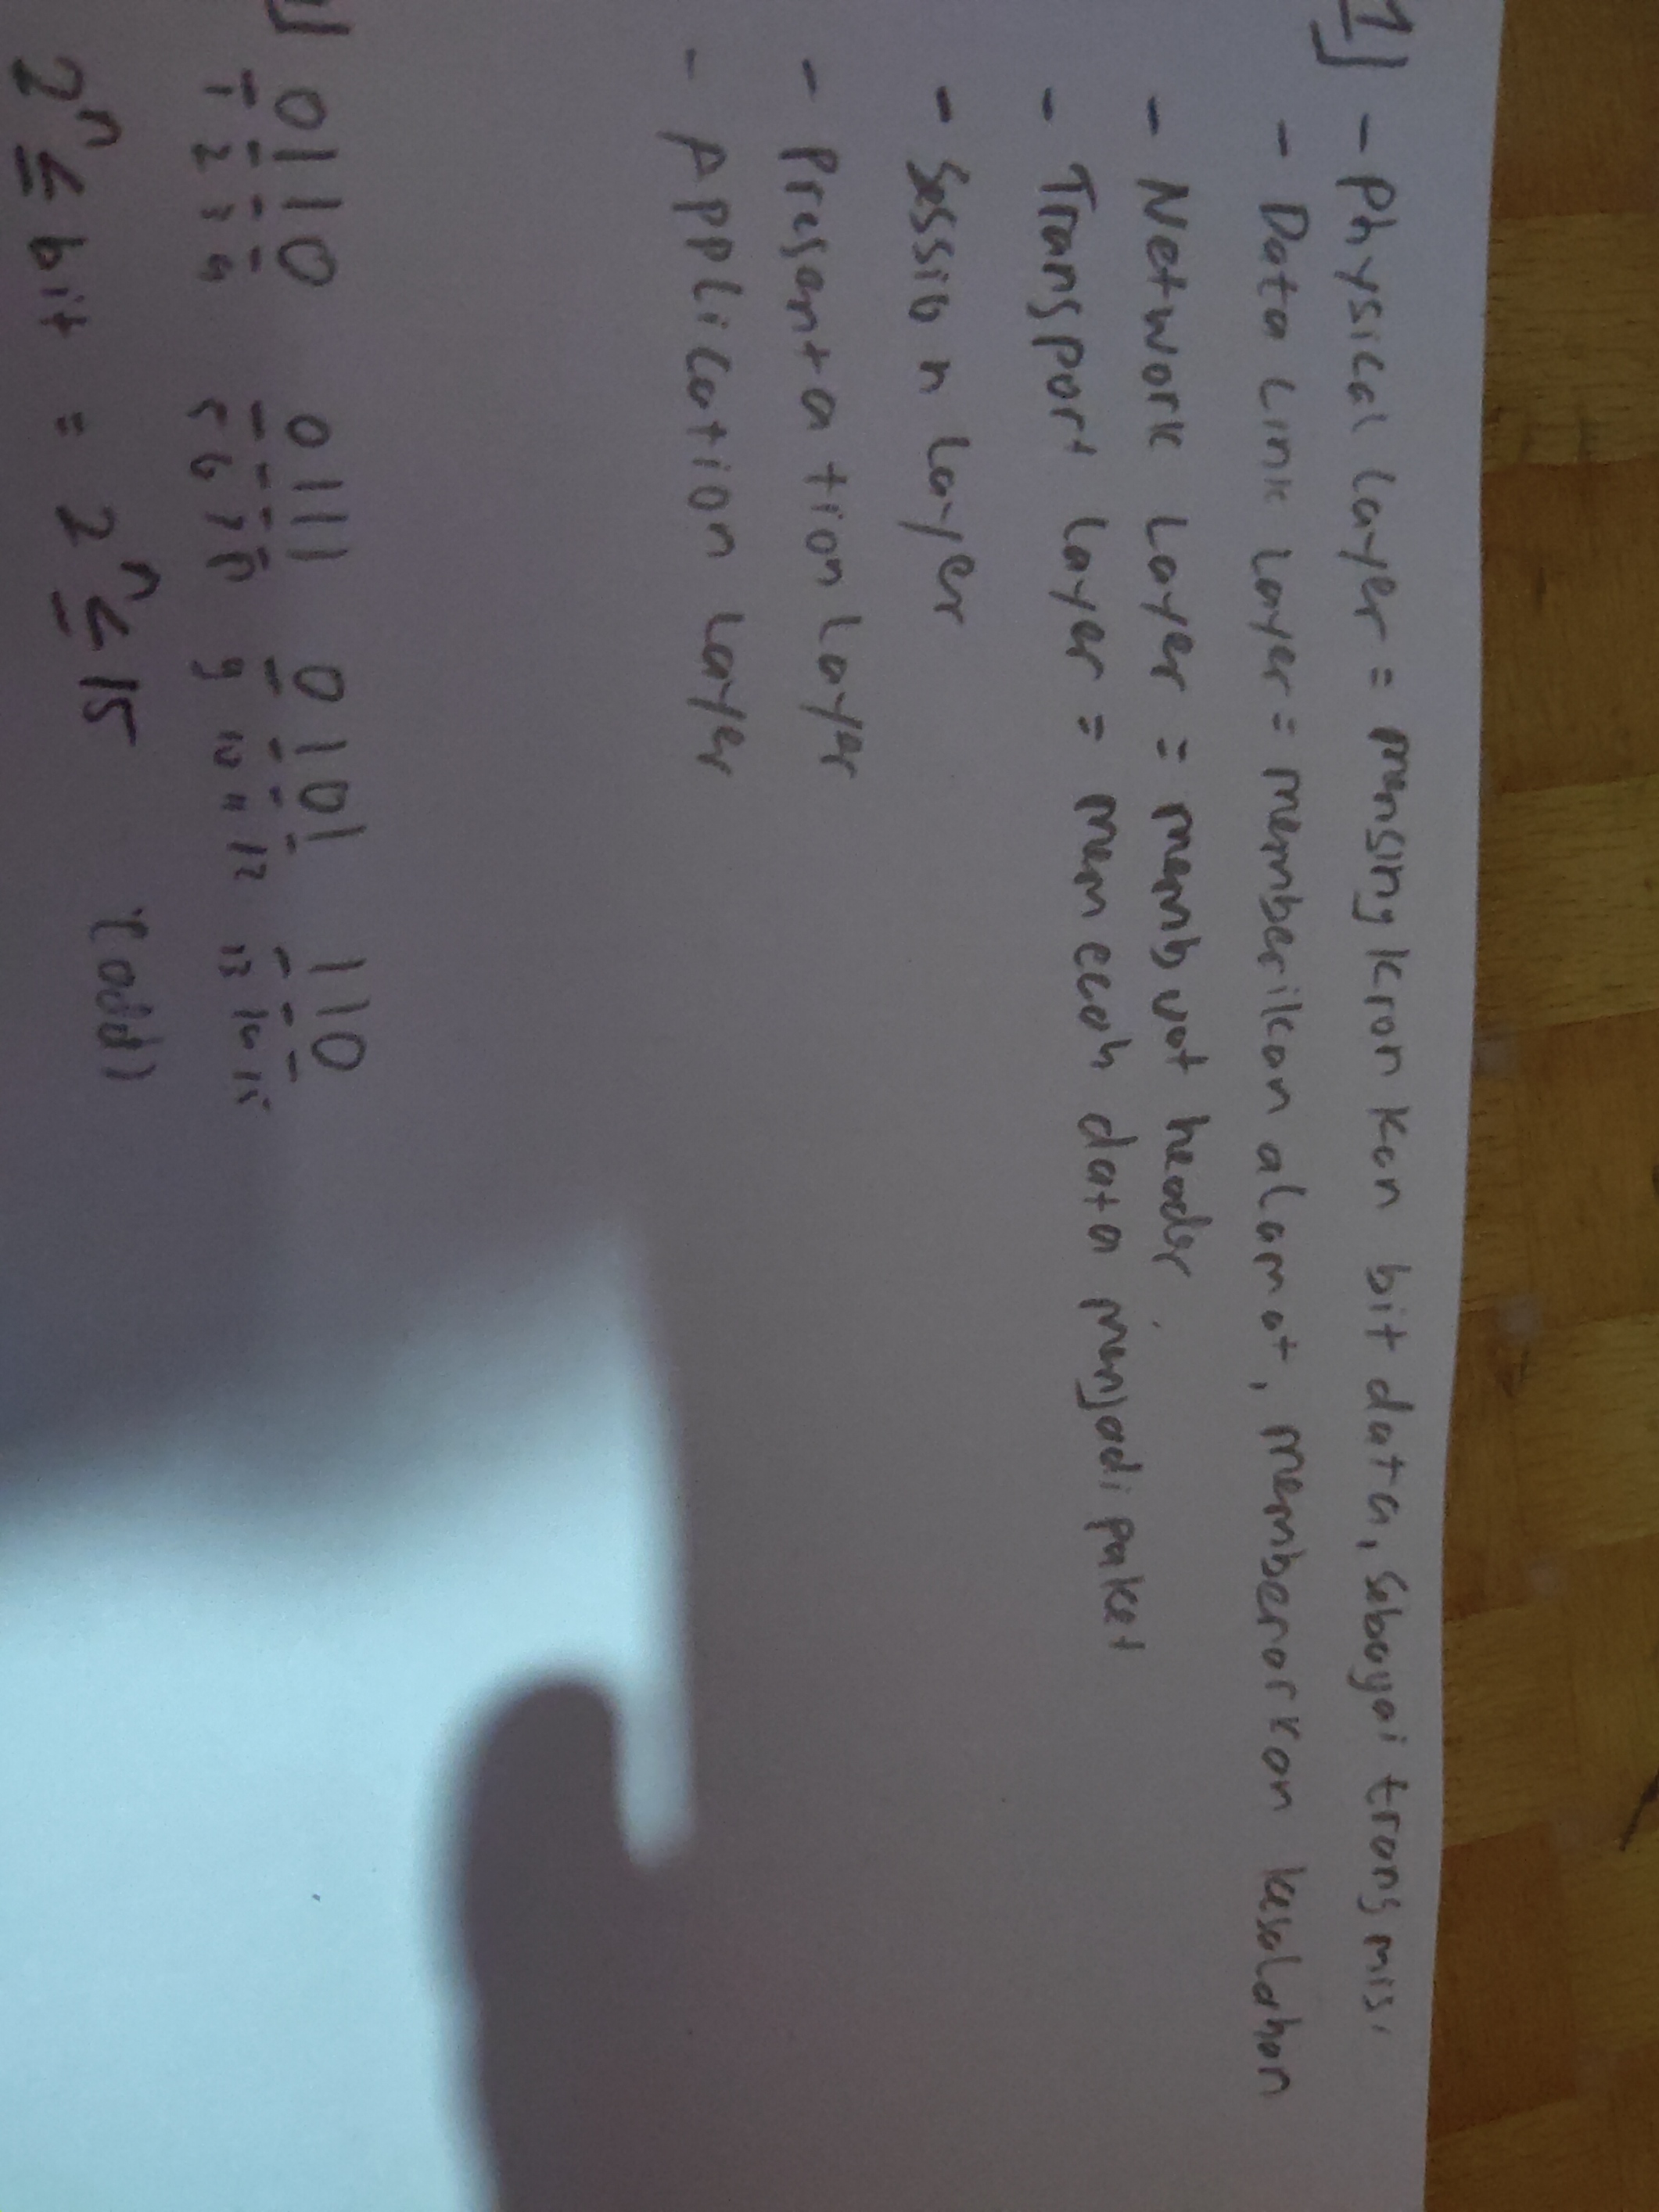 1] - Physical Layer = mensingkronkan bit data, sebagai transmisi
- Data Link Layer = memberikan alamat, membenarkan kesalahan
- Network Layer = membuat header
- Transport Layer = memecah data menjadi paket
- Session Layer
- Presentation Layer
- Application Layer
0110 0111 0101 110
1 2 3 4 5 6 7 8 9 10 11 12 13 14 15
2ⁿ ≤ bit = 2ⁿ ≤ 15 (odd)